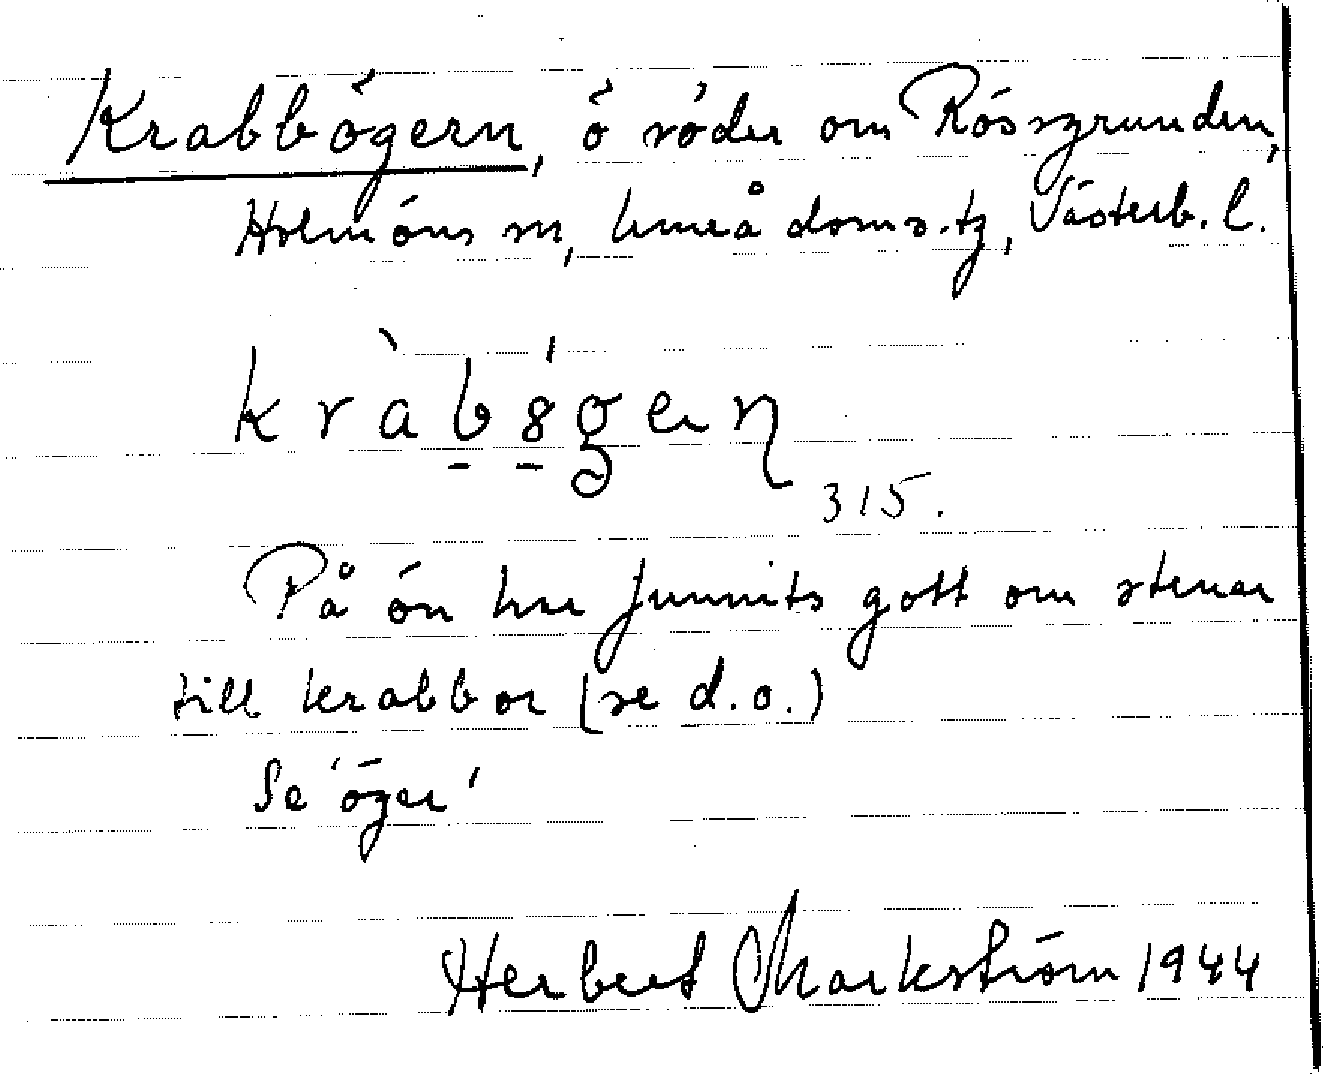 Krabbögern, ö söder om Rössgrunden,
Holmöns sn, Umeå doms.tg, Västerb. l.
kràbögern
315.
På ön har funnits gott om stenar
till krabbor (se d.o.)
Se 'öger'
Herbert Markström 1944